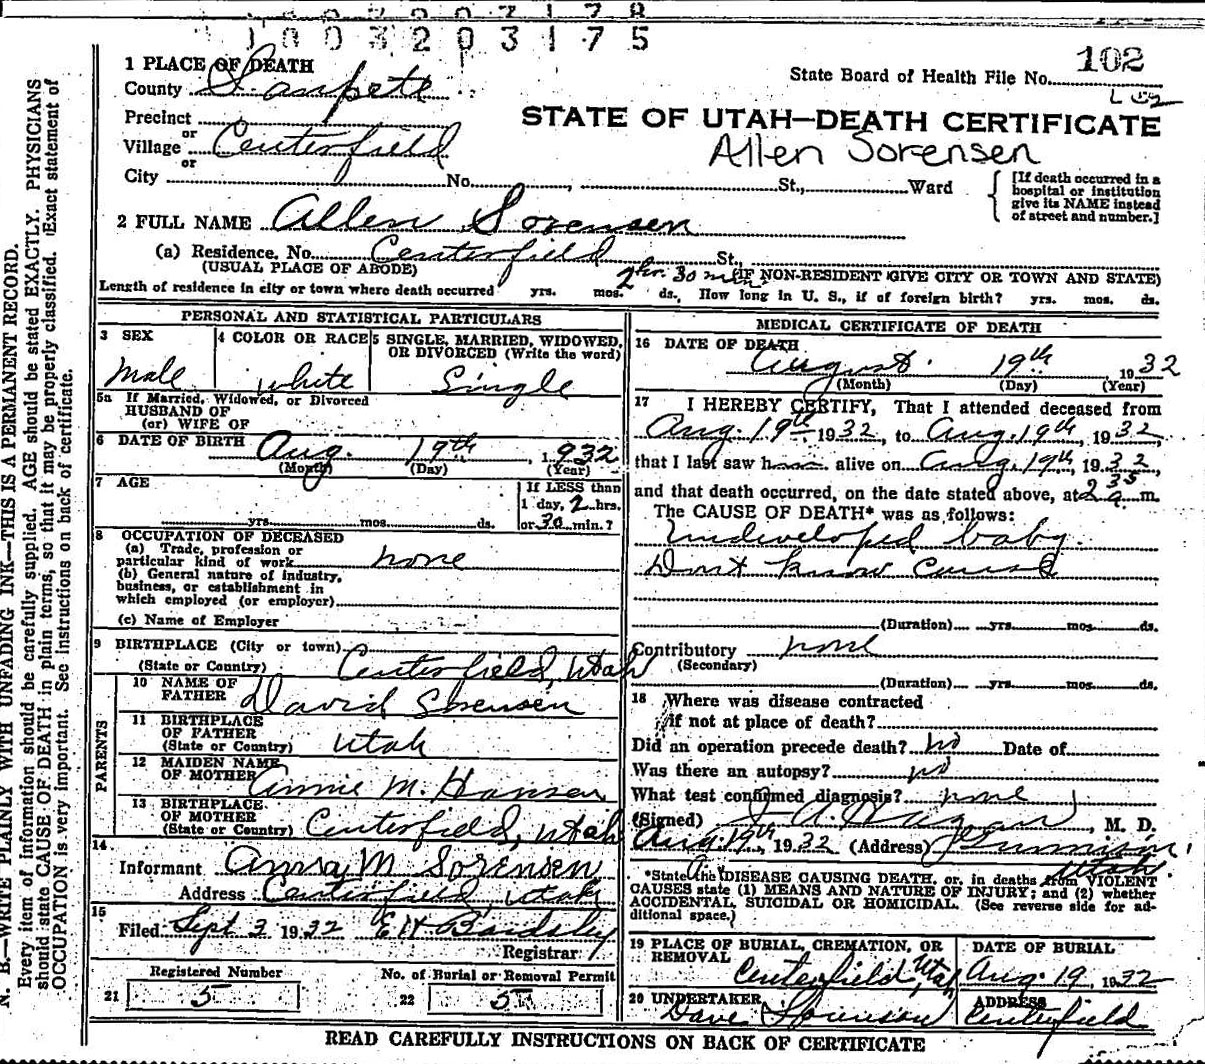 1003203175
102
State Board of Health File No.
1 PLACE OF DEATH
County Sanpete
Precinct
or
Village Centerfield
or
City No. , St., Ward
STATE OF UTAH—DEATH CERTIFICATE
Allen Sorensen
[If death occurred in a
hospital or institution
give its NAME instead
of street and number.]
2 FULL NAME Allen Sorensen
(a) Residence. No. Centerfield St.,
(USUAL PLACE OF ABODE) (IF NON-RESIDENT GIVE CITY OR TOWN AND STATE)
2 hrs 30 min
Length of residence in city or town where death occurred yrs. mos. ds. How long in U. S., if of foreign birth? yrs. mos. ds.
PERSONAL AND STATISTICAL PARTICULARS
3 SEX
Male
4 COLOR OR RACE
White
5 SINGLE, MARRIED, WIDOWED,
OR DIVORCED (Write the word)
Single
5a If Married, Widowed, or Divorced
HUSBAND OF
(or) WIFE OF
6 DATE OF BIRTH Aug. 19th, 1932
(Month) (Day) (Year)
7 AGE
yrs. mos. ds.
If LESS than
1 day, 2 hrs.
or 30 min.?
8 OCCUPATION OF DECEASED
(a) Trade, profession or
particular kind of work none
(b) General nature of industry,
business, or establishment in
which employed (or employer)
(c) Name of Employer
9 BIRTHPLACE (City or town)
(State or Country) Centerfield, Utah
PARENTS
10 NAME OF
FATHER David Sorensen
11 BIRTHPLACE
OF FATHER
(State or Country) Utah
12 MAIDEN NAME
OF MOTHER Annie M. Hansen
13 BIRTHPLACE
OF MOTHER
(State or Country) Centerfield, Utah
14
Informant Anna M Sorensen
Address Centerfield, Utah
15
Filed Sept 3 1932 E H Bardsley
Registrar
21 Registered Number
5
22 No. of Burial or Removal Permit
5
MEDICAL CERTIFICATE OF DEATH
16 DATE OF DEATH
August 19th 1932
(Month) (Day) (Year)
17 I HEREBY CERTIFY, That I attended deceased from
Aug. 19th 1932, to Aug. 19th, 1932,
that I last saw h alive on Aug. 19th, 1932,
and that death occurred, on the date stated above, at 2 35 a m.
The CAUSE OF DEATH* was as follows:
Undeveloped baby.
Dont know Cause
(Duration) yrs. mos. ds.
Contributory none
(Secondary)
(Duration) yrs. mos. ds.
18 Where was disease contracted
if not at place of death?
Did an operation precede death? No Date of
Was there an autopsy? no
What test confirmed diagnosis? none
(Signed) , M. D.
Aug. 19th, 1932 (Address) Gunnison,
Utah.
*State the DISEASE CAUSING DEATH, or, in deaths from VIOLENT
CAUSES state (1) MEANS AND NATURE OF INJURY; and (2) whether
ACCIDENTAL, SUICIDAL OR HOMICIDAL. (See reverse side for ad-
ditional space.)
19 PLACE OF BURIAL, CREMATION, OR
REMOVAL
Centerfield, Utah
DATE OF BURIAL
Aug. 19, 1932
20 UNDERTAKER
Dave Sorenson
ADDRESS
Centerfield
READ CAREFULLY INSTRUCTIONS ON BACK OF CERTIFICATE
N. B.—WRITE PLAINLY WITH UNFADING INK—THIS IS A PERMANENT RECORD.
Every item of information should be carefully supplied. AGE should be stated EXACTLY. PHYSICIANS
should state CAUSE OF DEATH in plain terms, so that it may be properly classified. Exact statement of
OCCUPATION is very important. See instructions on back of certificate.